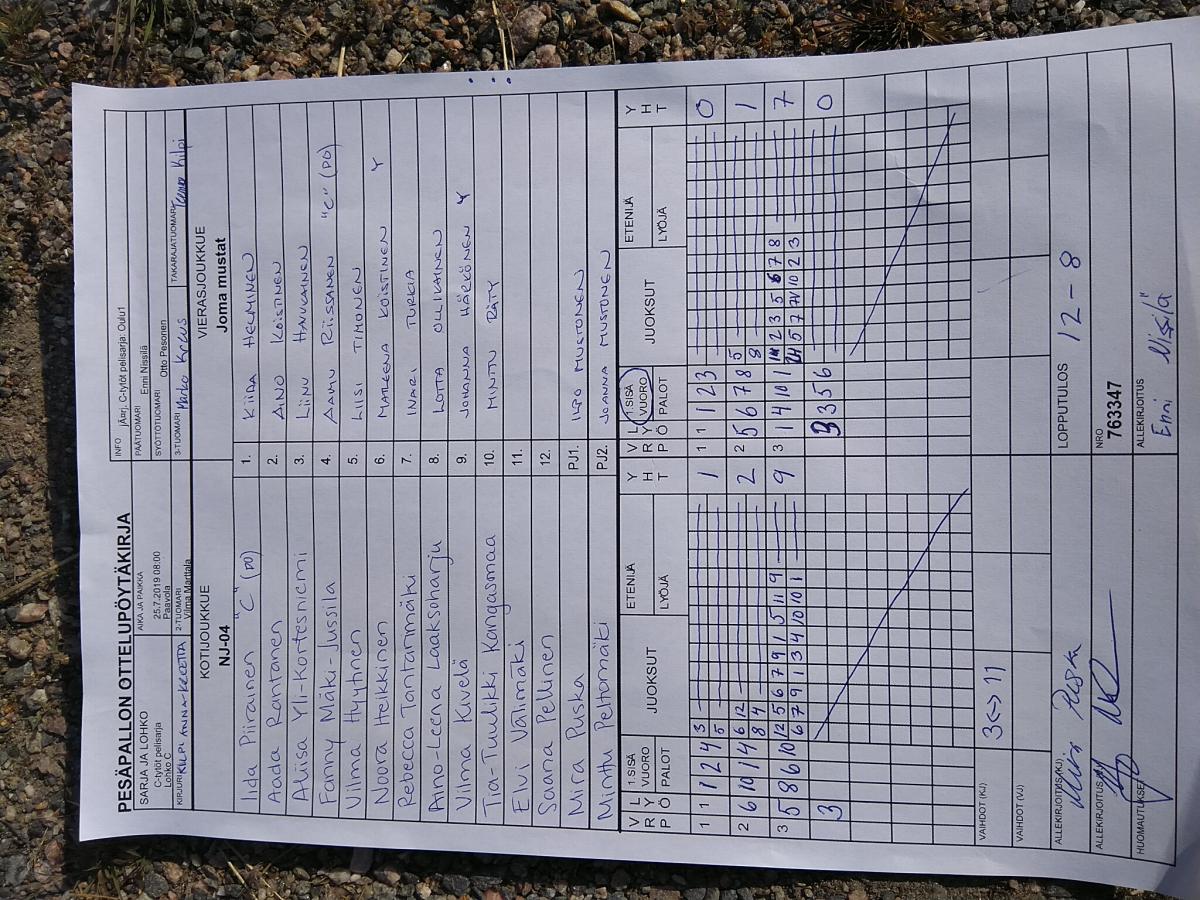 PESÄPALLON OTTELUPÖYTÄKIRJA
SARJA JA LOHKO
C-tytöt pelisarja
Lohko C
AIKA JA PAIKKA
25.7.2019 08:00
Paavola
INFO jÄsrj. C-tytöt pelisarja: Oulu1
PÄÄTUOMARI Enni Nissilä
SYÖTTÖTUOMARI Otto Pesonen
KIRJURI KILPI ANNA-REETTA
2-TUOMARI Vilma Marttala
3-TUOMARI Marko Kraus
TAKARAJATUOMARI Teemu Kilpi
KOTIJOUKKUE
NJ-04
VIERASJOUKKUE
Joma mustat
Iida Piirainen "C" (PO) 1. KIIRA HELMINEN
Aada Rantanen 2. AINO KOISTINEN
Aliisa Yli-Kortesniemi 3. LIINU HAVUKAINEN
Fanny Mäki-Jussila 4. AAMU RIISSANEN "C" (PO)
Vilma Hyytinen 5. LIISI TIMONEN
Noora Heikkinen 6. MATLEENA KOISTINEN Y
Rebecca Tantarimäki 7. INARI TURKIA
Aino-Leena Laaksoharju 8. LOTTA OLLIKAINEN
Vilma Kivelä 9. JOHANNA HÄRKÖNEN Y
Tia-Tuulikki Kangasmaa 10. MINTTU RÄTY
Elvi Välimäki 11.
Saana Pellinen 12.
Mira Puska PJ1. ILPO MUSTONEN
Minttu Peltomäki PJ2. JOANNA MUSTONEN
V L R Y P Ö 1.SISÄ VUORO PALOT JUOKSUT ETENIJÄ LYÖJÄ Y H T
V L R Y P Ö 1.SISÄ VUORO PALOT JUOKSUT ETENIJÄ LYÖJÄ Y H T
1 1 1 2 4 3 5 1
1 1 1 2 3 0
2 6 10 1 4 6 12 8 4 2
2 5 6 7 8 5 8 1
3 5 8 6 10 12 5 6 7 9 1 5 11 9 6 7 9 1 3 4 10 10 1 9
3 1 4 10 1 2 3 5 6 7 8 5 7 10 2 3 7
3
3 3 5 6 0
VAIHDOT (KJ) 3<->11
VAIHDOT (VJ)
ALLEKIRJOITUS(KJ) Mira Puska
LOPPUTULOS 12 - 8
ALLEKIRJOITUS(VJ)
NRO
763347
HUOMAUTUKSET
ALLEKIRJOITUS
Enni Nissilä